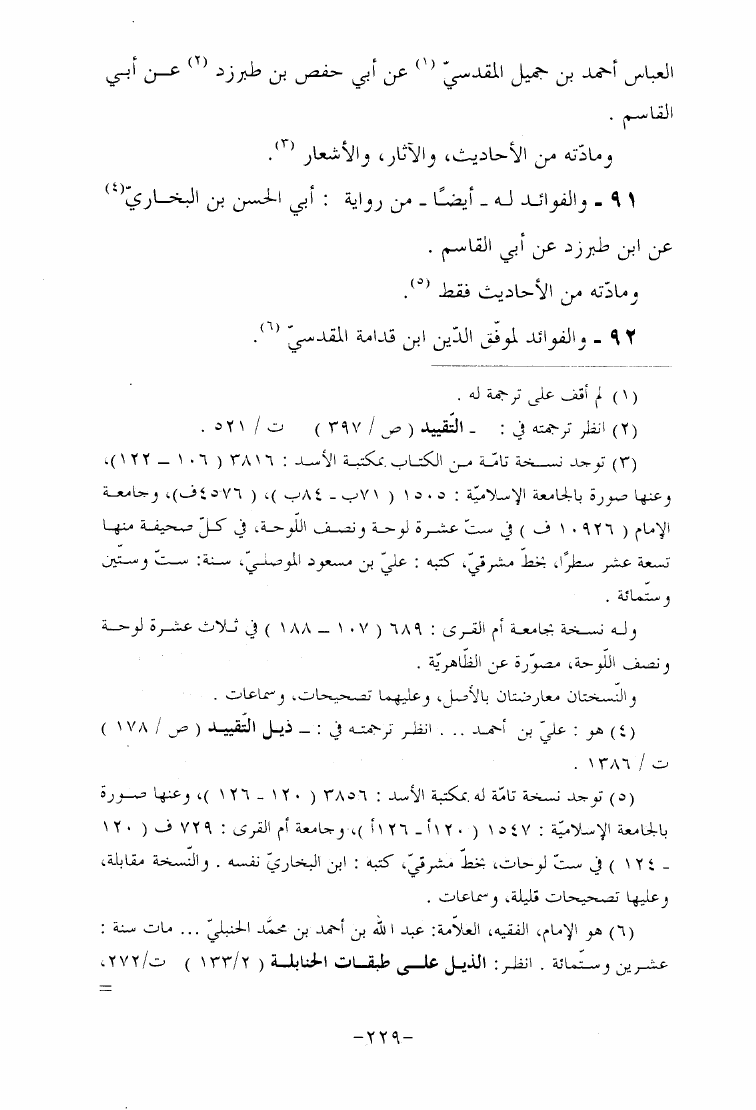 العباس أحمد بن جميل المقدسيّ (١) عن أبي حفص بن طبرزد (٢) عن أبي
القاسم .
ومادّته من الأحاديث، والآثار، والأشعار (٣).
٩١ - والفوائد له - أيضًا - من رواية : أبي الحسن بن البخاريّ(٤)
عن ابن طبرزد عن أبي القاسم .
ومادّته من الأحاديث فقط (٥).
٩٢ - والفوائد لموفّق الدّين ابن قدامة المقدسيّ (٦).
(١) لم أقف على ترجمة له .
(٢) انظر ترجمته في : - التّقييد ( ص / ٣٩٧ ) ت / ٥٢١ .
(٣) توجد نسخة تامّة من الكتاب بمكتبة الأسد : ٣٨١٦ ( ١٠٦ – ١٢٢)،
وعنها صورة بالجامعة الإسلاميّة : ١٥٠٥ ( ٧١ب - ٨٤ب )، ( ٤٥٧٦ف)، وجامعة
الإمام ( ١٠٩٢٦ ف ) في ستّ عشرة لوحة ونصف اللّوحة، في كلّ صحيفة منها
تسعة عشر سطرًا، بخطّ مشرقيّ، كتبه : عليّ بن مسعود الموصليّ، سنة: ستّ وستّين
وستّمائة .
وله نسخة بجامعة أم القرى : ٦٨٩ ( ١٠٧ – ١٨٨ ) في ثلاث عشرة لوحة
ونصف اللّوحة، مصوّرة عن الظّاهريّة .
والنّسختان معارضتان بالأصل، وعليهما تصحيحات، وسماعات .
(٤) هو : عليّ بن أحمد .. . انظر ترجمته في : – ذيل التّقييد ( ص / ١٧٨ )
ت / ١٣٨٦ .
(٥) توجد نسخة تامّة له بمكتبة الأسد : ٣٨٥٦ ( ١٢٠ - ١٢٦ )، وعنها صورة
بالجامعة الإسلاميّة : ١٥٤٧ ( ١٢٠أ- ١٢٦أ )، وجامعة أم القرى : ٧٢٩ ف ( ١٢٠
- ١٢٤ ) في ستّ لوحات، بخطّ مشرقيّ، كتبه : ابن البخاريّ نفسه . والنّسخة مقابلة،
وعليها تصحيحات قليلة، وسماعات .
(٦) هو الإمام، الفقيه، العلاّمة: عبد الله بن أحمد بن محمّد الحنبليّ ... مات سنة :
عشرين وستّمائة . انظر: الذيل على طبقات الحنابلة ( ١٣٣/٢ ) ت/٢٧٢،
=
-٢٢٩-